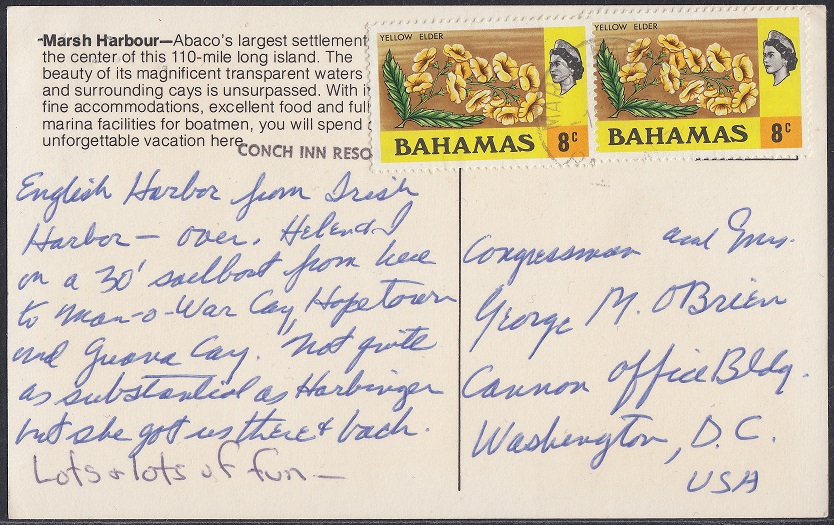 Marsh Harbour—Abaco's largest settlement
the center of this 110-mile long island. The
beauty of its magnificent transparent waters
and surrounding cays is unsurpassed. With
fine accommodations, excellent food and full
marina facilities for boatmen, you will spend
unforgettable vacation here.
CONCH INN RESO
YELLOW ELDER
BAHAMAS 8c
YELLOW ELDER
BAHAMAS 8c
English Harbor from Irish
Harbor — over. Helen & I
on a 30' sailboat from here
to Man-o-War Cay, Hopetown
and Guana Cay. Not quite
as substantial as Harbinger
but she got us there & back.
Lots & lots of fun —
Congressman and Mrs.
George M. O'Brien
Cannon Office Bldg.
Washington, D.C.
USA